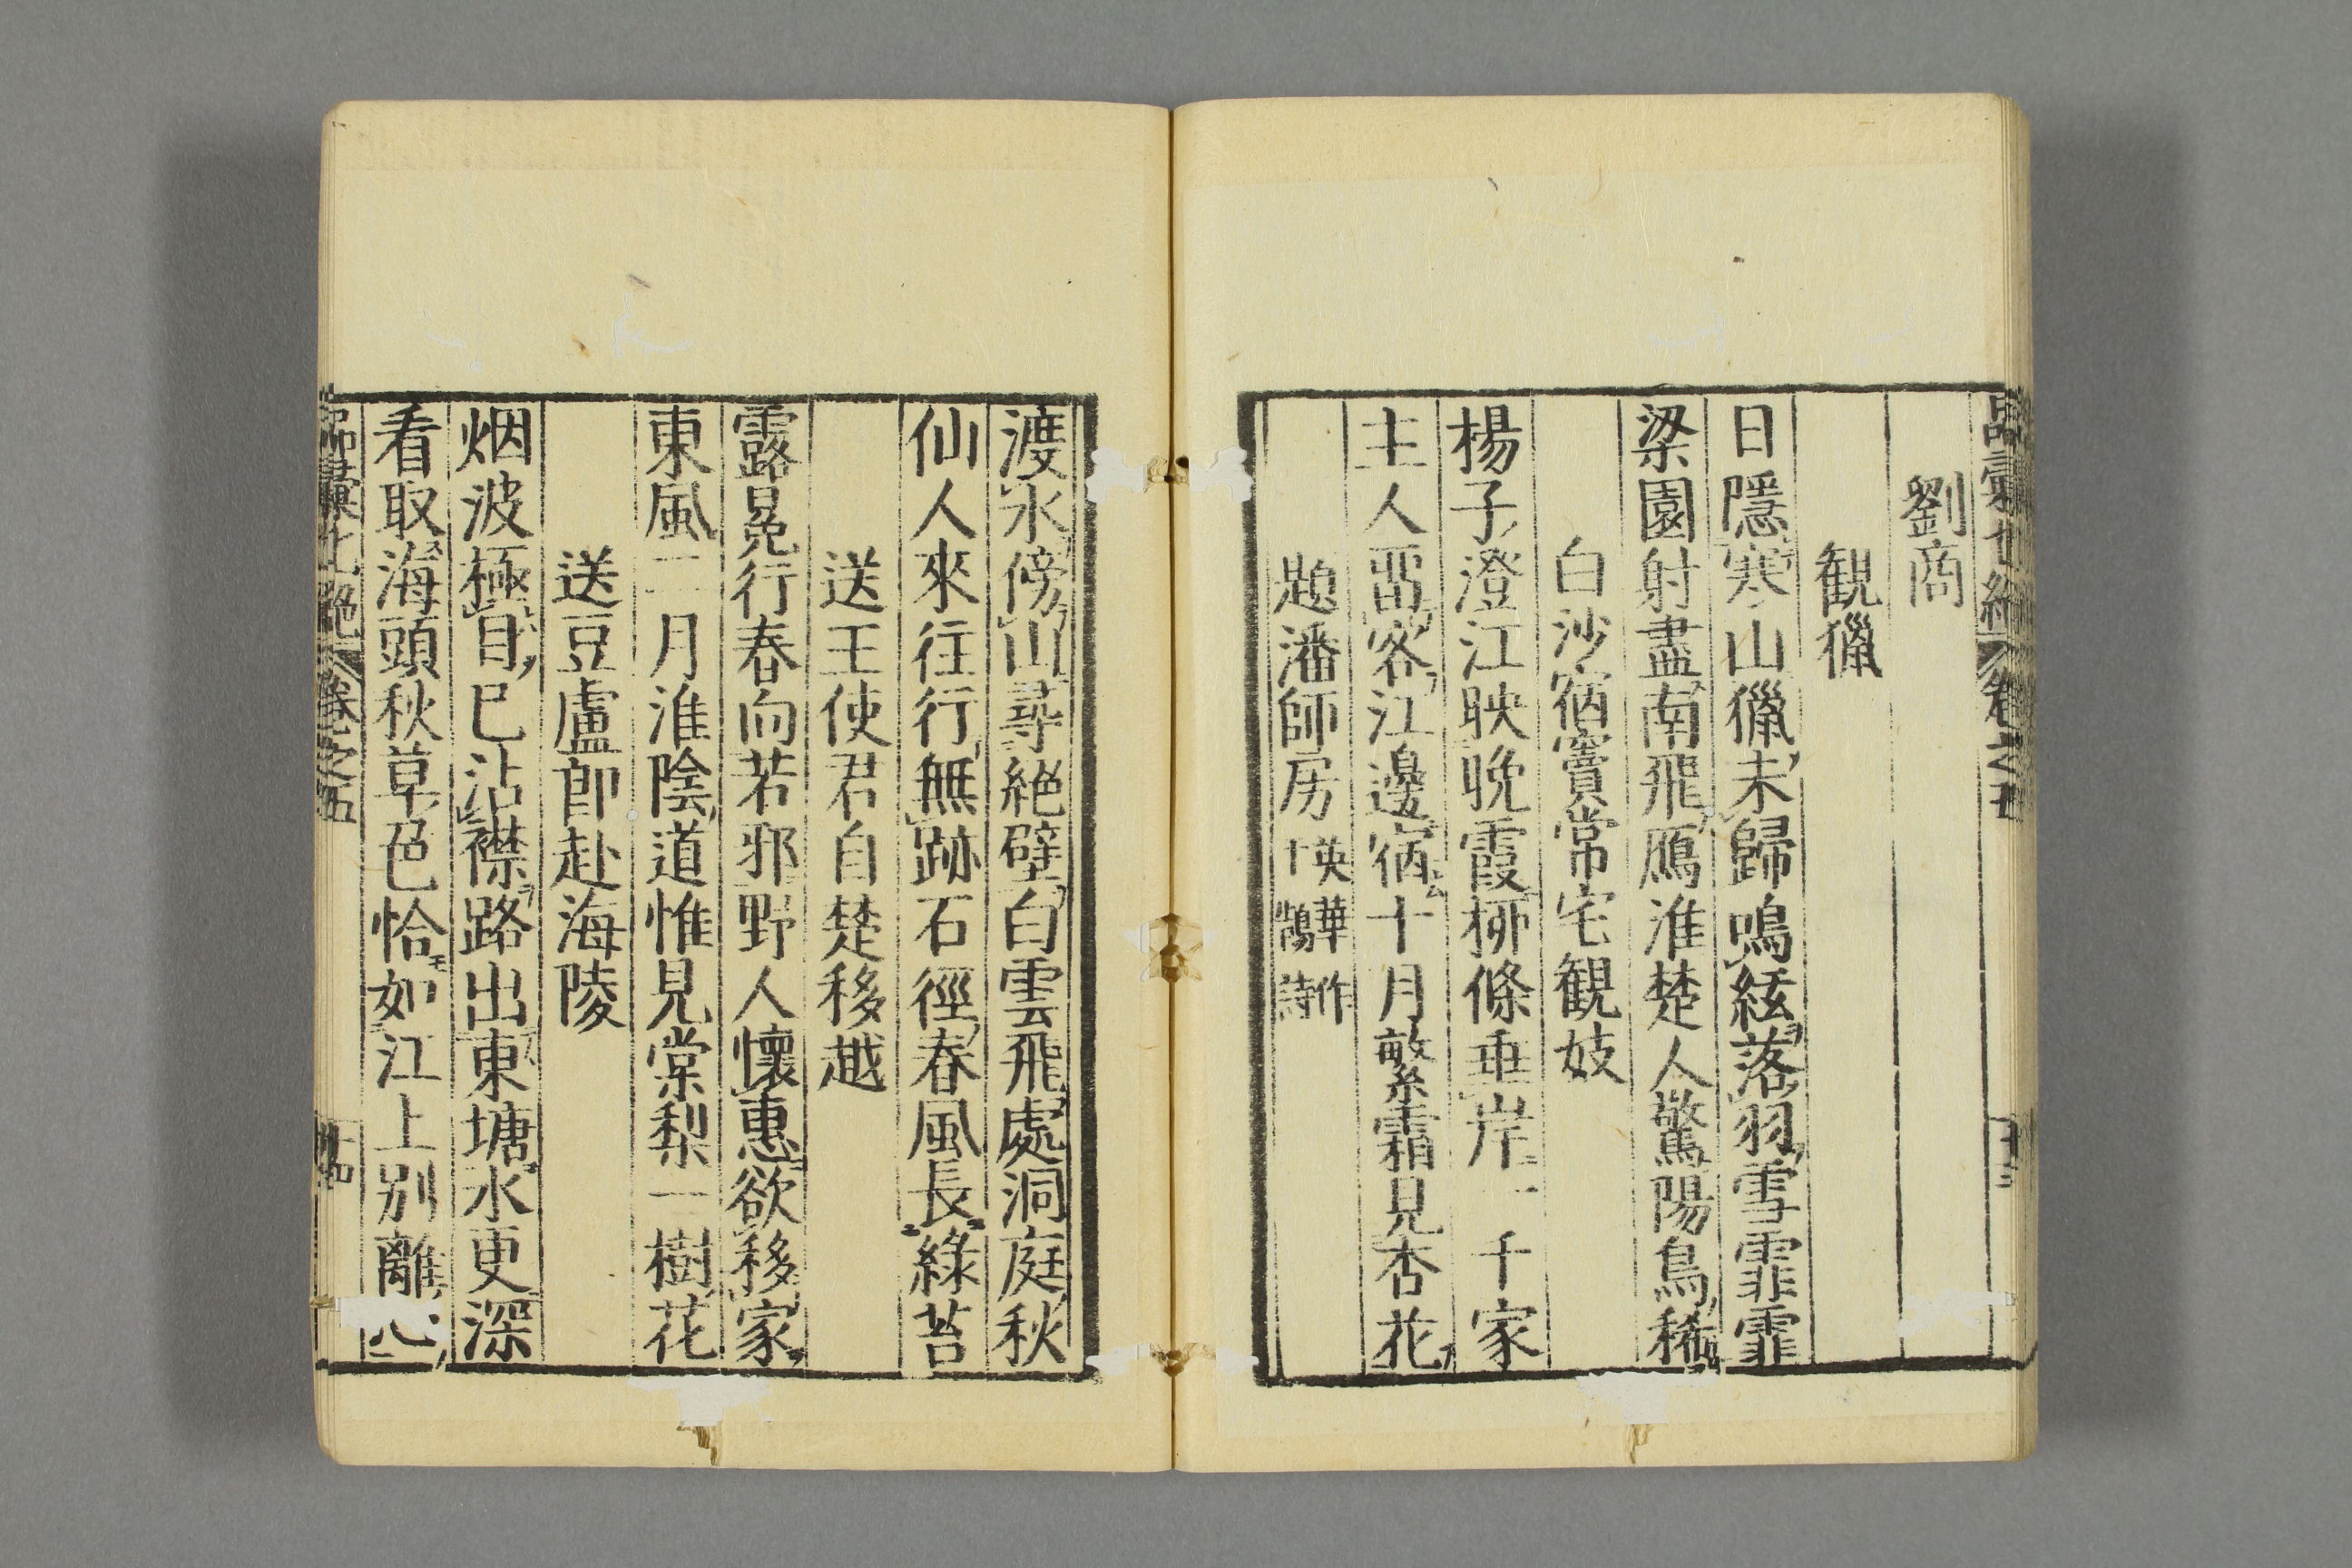 品彙七絶 卷之五 十三
劉商
觀獵
日隱寒山獵未歸鳴絃落羽雪霏霏
梁園射盡南飛鴈淮楚人驚陽鳥稀
白沙宿竇常宅觀妓
楊子澄江映晚霞柳條垂岸一千家
主人畱客江邊宿十月繁霜見杏花
題潘師房 英華作十鵶詩
渡水傍山尋絕壁白雲飛處洞庭秋
仙人來往行無跡石徑春風長綠苔
送王使君自楚移越
露冕行春向若邪野人懷惠欲移家
東風二月淮陰道惟見棠梨一樹花
送豆盧郎赴海陵
烟波極目已沾襟路出東塘水更深
看取海頭秋草色恰如江上別離心
品彙七絶 卷之五 十四